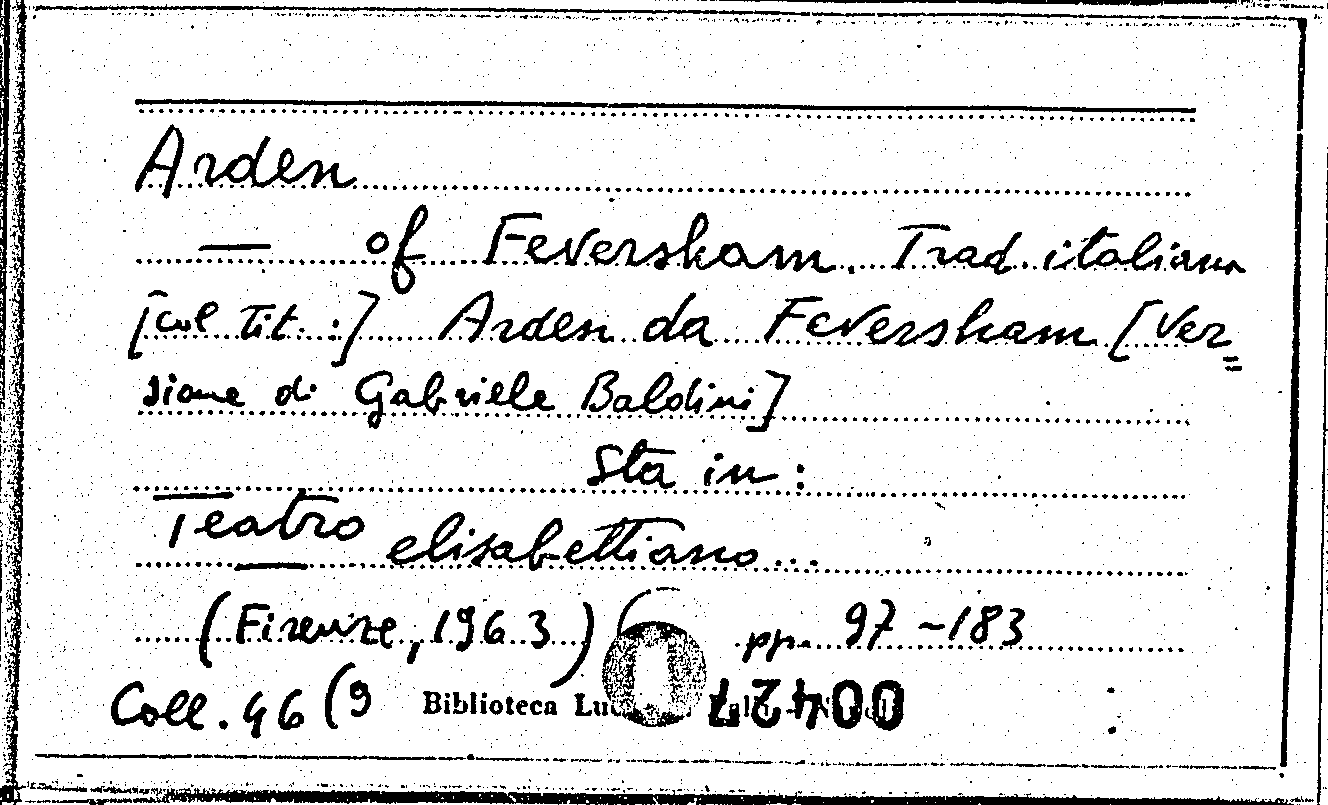 Arden
— of Feversham. Trad. italiana
[col tit.:] Arden da Feversham [Ver=
sione di Gabriele Baldini]
Sta in:
Teatro elisabettiano...
(Firenze, 1963) pp. 97-183
Coll. 46 (9 Biblioteca 00427